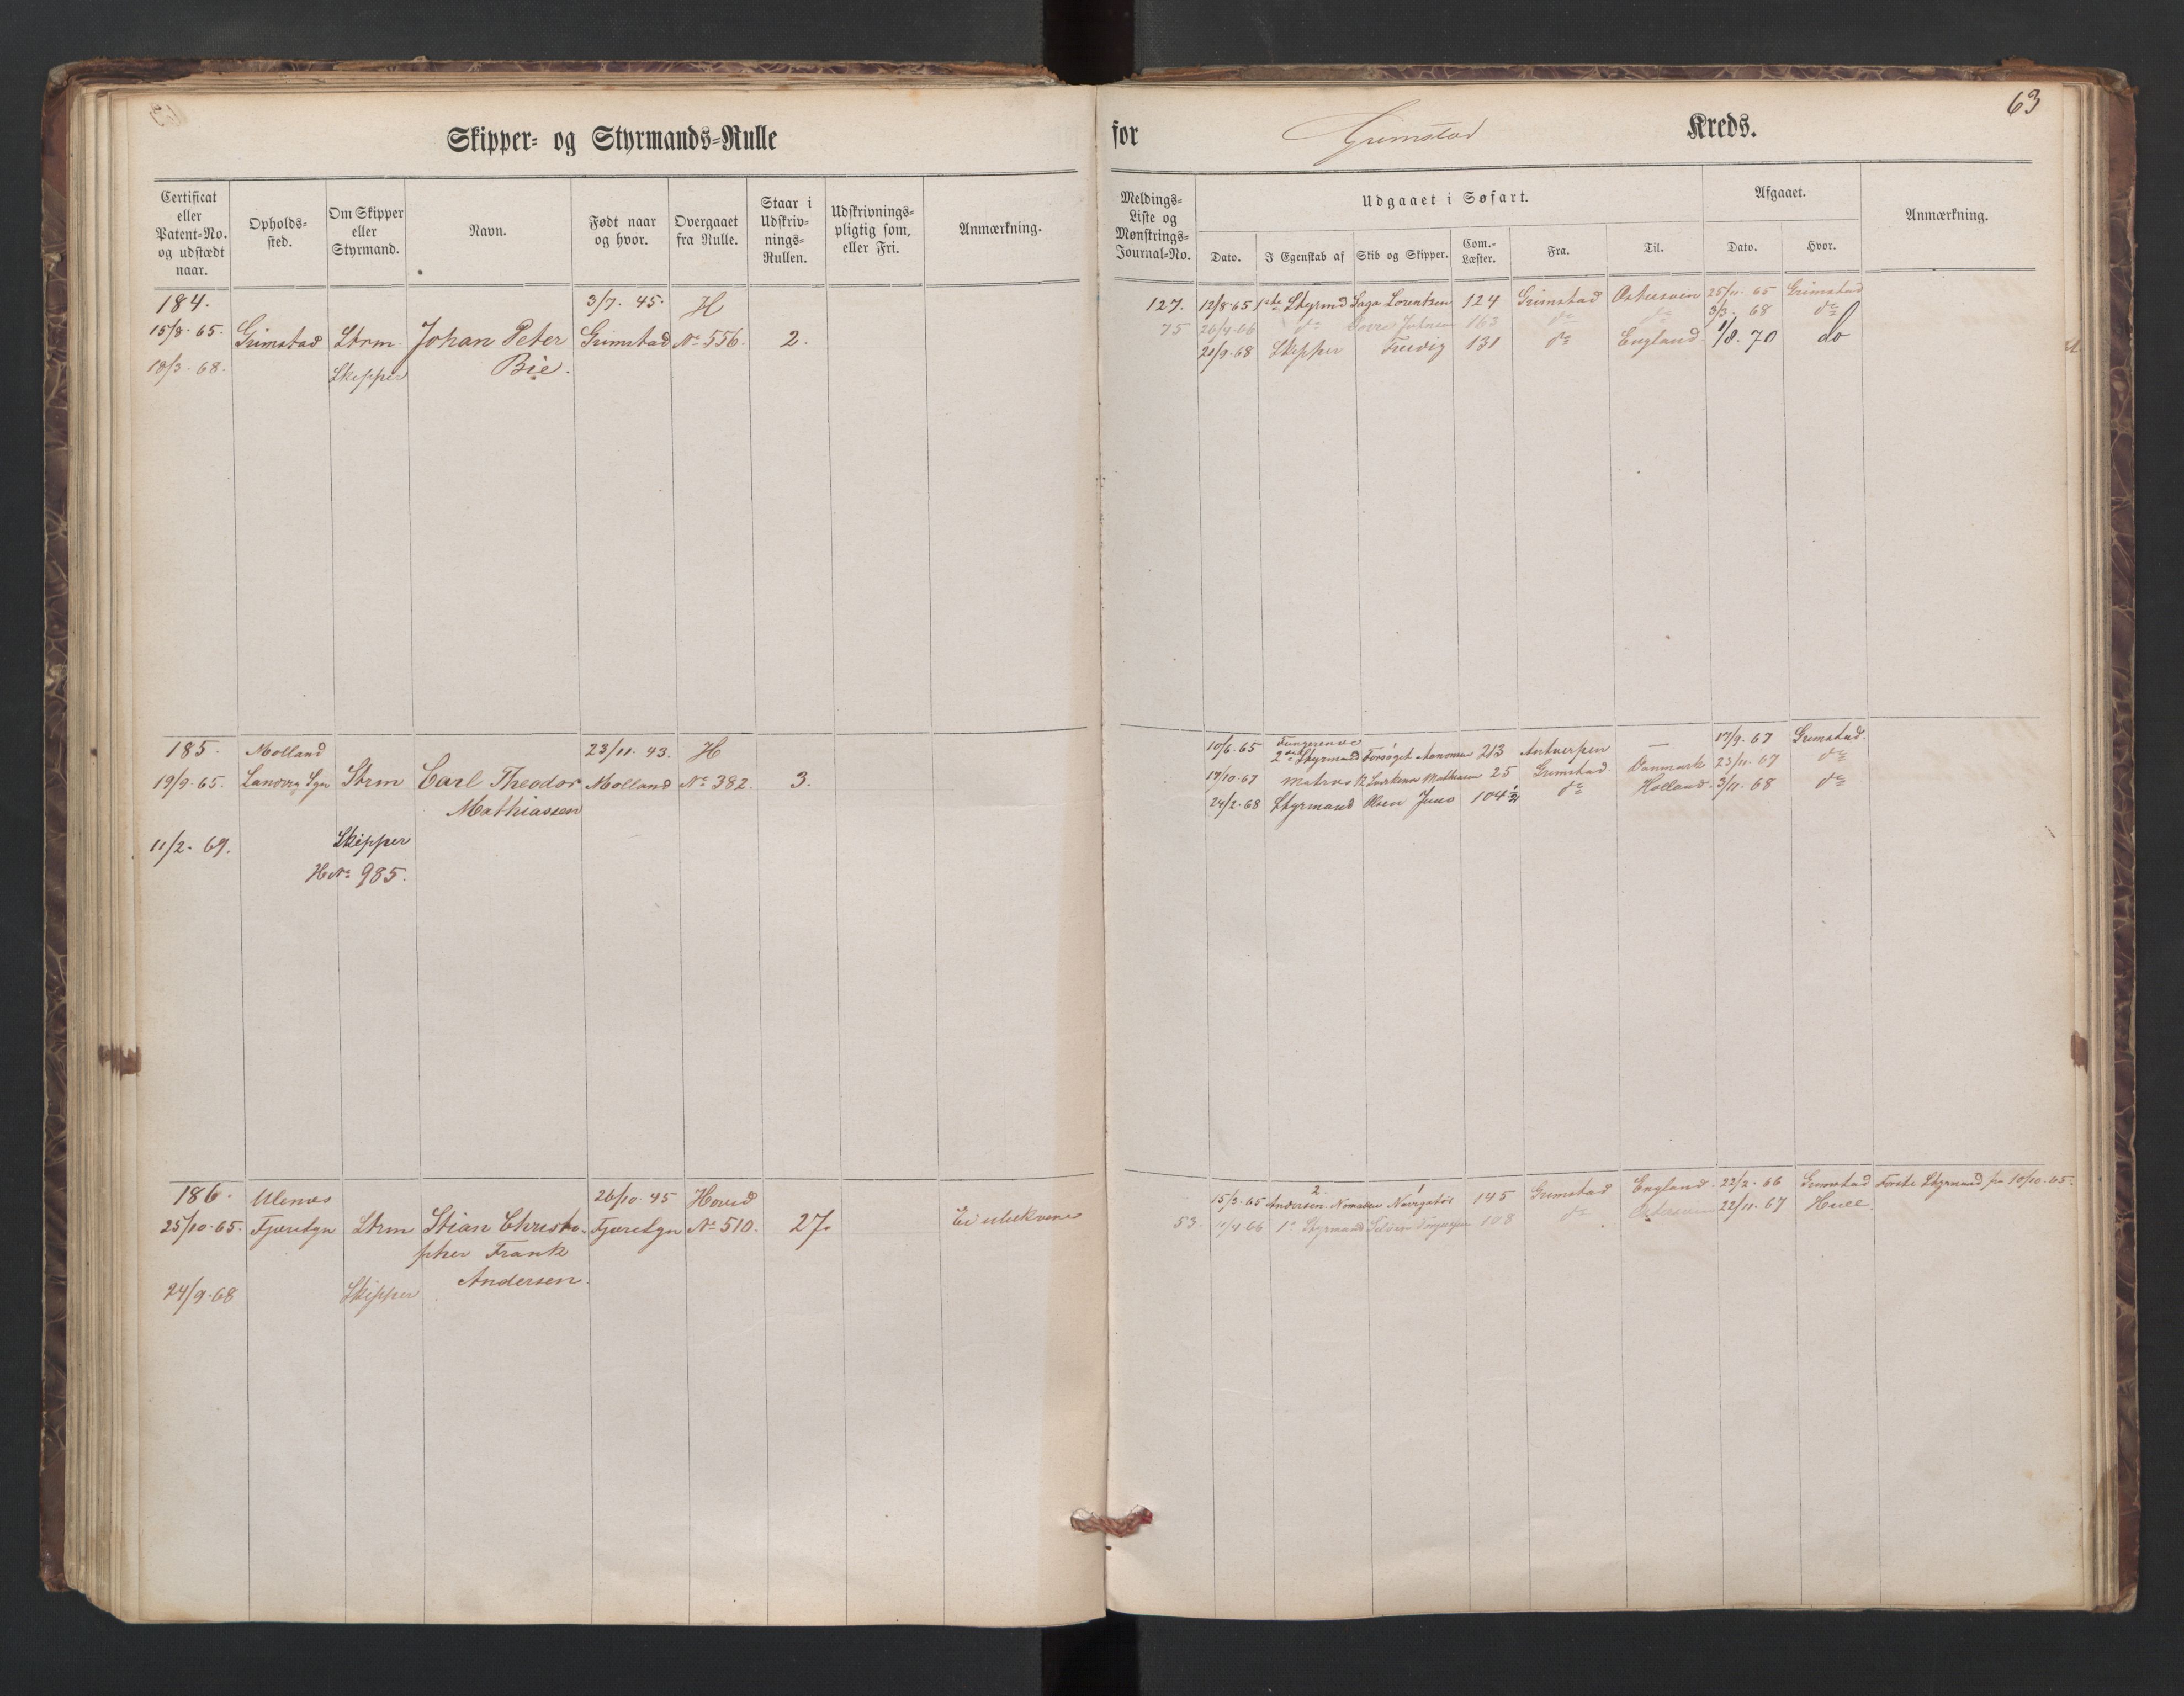 Skipper- og Styrmands-Rulle
Certificat eller Patent-No. og udstædt naar.
Opholds-sted.
Om Skipper eller Styrmand.
Navn.
Født naar og hvor.
Overgaaet fra Rulle.
Staar i Udskriv-nings-Rullen.
Udskrivnings-pligtig som, eller Fri.
Anmærkning.
184. 3/7. 45. H
15/8. 65. Grimstad Strm. Johan Peter Grimstad No 556. 2.
18/3. 68. Skipper Bie.
185. Molland 23/11. 43. H
19/9. 65. Landvig Sgn Strm Carl Theodor Molland No 382. 3.
Mathiassen
11/2. 69. Skipper
H No 985.
186. 26/10. 45 Hoved
25/10. 65. Fjære Sgn Strm Stian Christo- Fjære Sgn No 510. 27.
pher Frank
Andersen.
24/9. 68 Skipper
63
for Grimstad Kreds.
Meldings-Liste og Mønstrings-Journal-No.
Udgaaet i Søfart.
Dato.
I Egenskab af
Skib og Skipper.
Com.-Læster.
Fra.
Til.
Afgaaet.
Dato.
Hvor.
Anmærkning.
127. 12/8. 65 1ste Styrmd Saga Lorentzen 124 Grimstad Østersøen 25/11. 65 Grimstad
75 26/4. 66 do 163 do do 3/3. 68 do
21/9. 68 Skipper 131 do England 1/8. 70 do
10/6. 65 Fungerende 2den Styrmand Forsøget 213 Antwerpen — 17/9. 67 Grimstad.
17/10. 67 Matros Mathiasen 25 Grimstad. Danmark 23/11. 67 do
24/2. 68 Styrmand Olsen Juno 104 do Holland. 3/11. 68 do
2. 1
15/3. 65 Andersen. Navigatør 145 Grimstad England. 22/2. 66 Grimstad Første Styrmand fra 10/10. 65.
53. 11/4 66 1e Styrmand 108 do Østersøen 22/11. 67 Hull